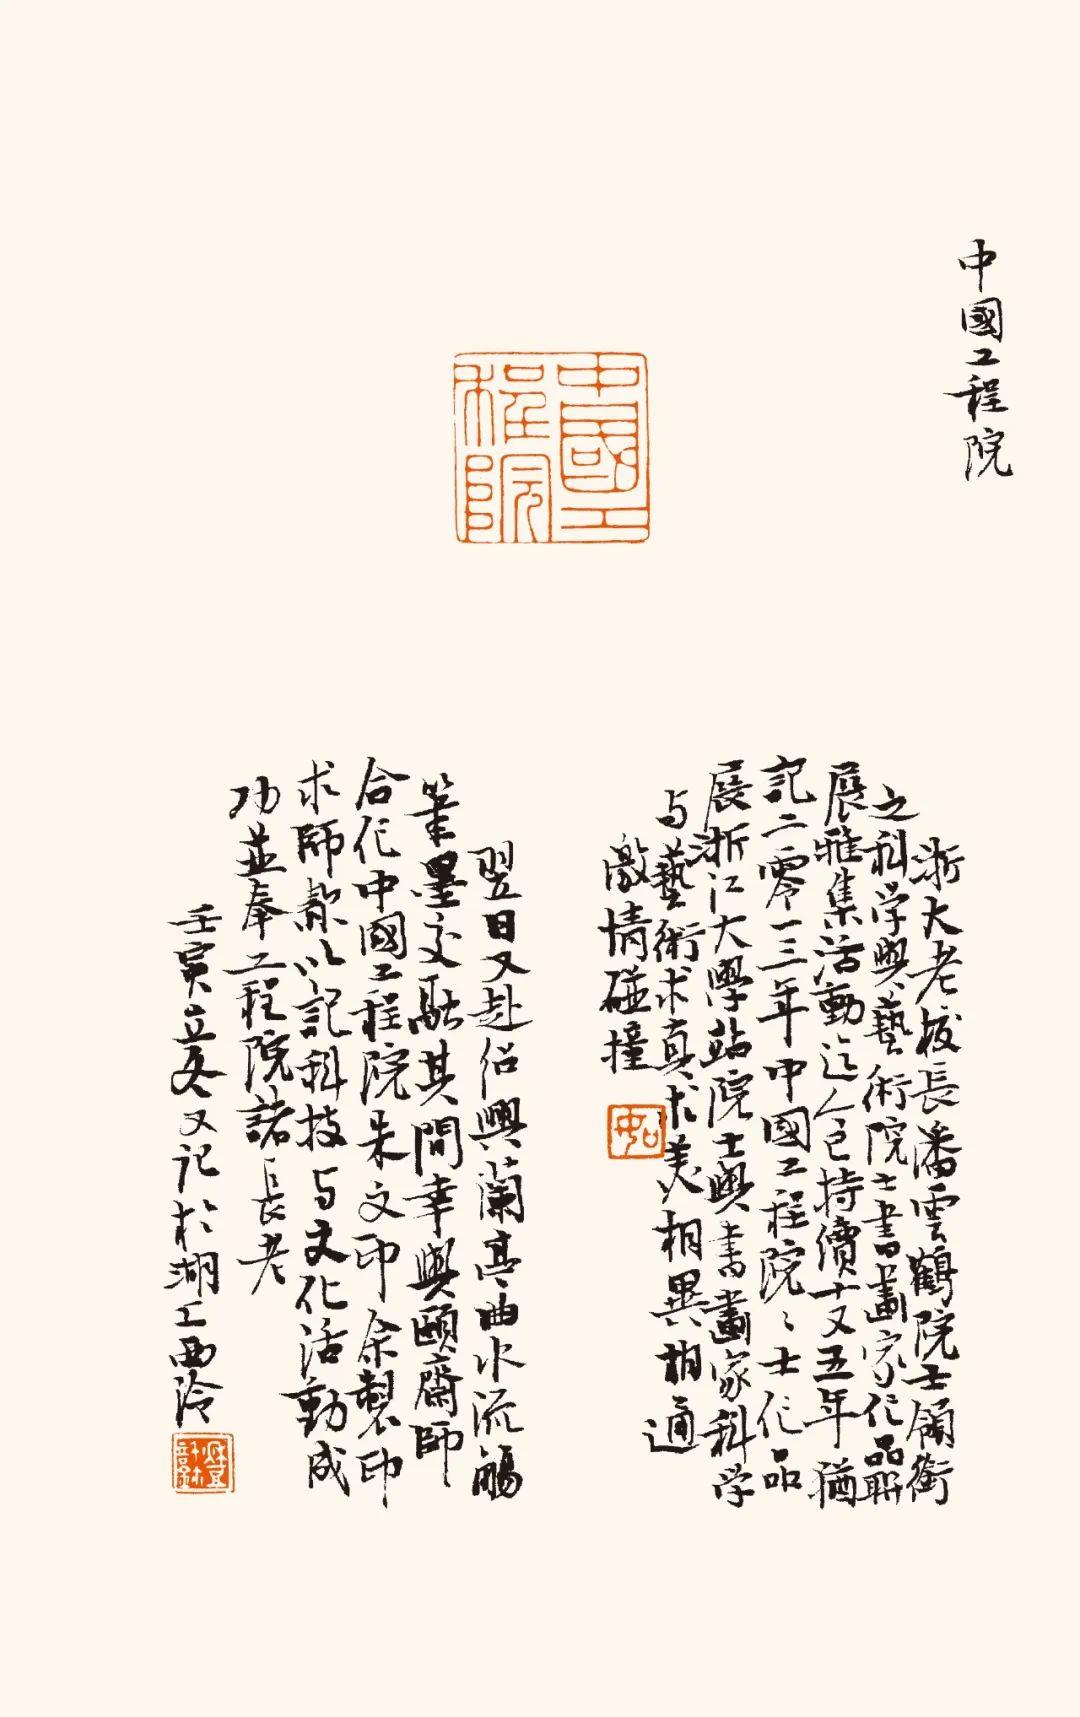 中國工程院
中國工程院
浙大老校長潘雲鶴院士領銜
之科学與藝術院士書畫家作品聯
展雅集活動迄今已持續十又五年猶
記二零一三年中國工程院々士作品
展浙江大學站院士與書畫家科学
与藝術求真求美相異相通
激情碰撞
翌日又赴侣興蘭亭曲水流觴
筆墨交融其間幸與頤齋師
合作中國工程院朱文印余製印
求師款以記科技与文化活動成
功並奉工程院諸長老
壬寅立冬又記於湖上西泠